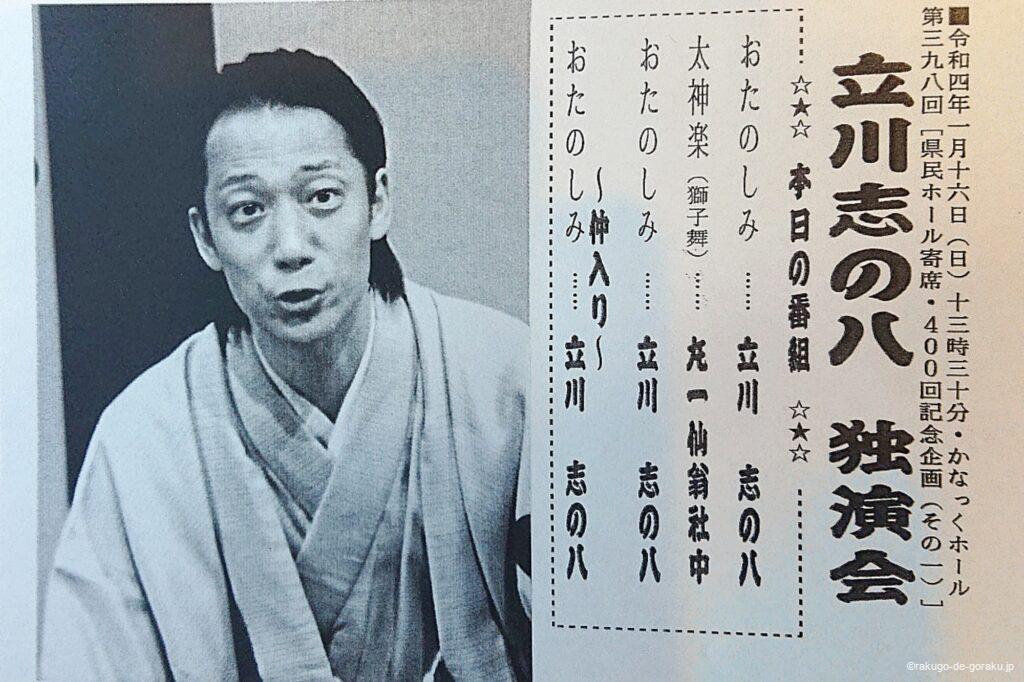 ■令和四年一月十六日（日）十三時三十分・かなっくホール
第三九八回［県民ホール寄席・400回記念企画（その一）］
立川志の八 独演会
☆★☆ 本日の番組 ☆★☆
おたのしみ …… 立川 志の八
太神楽（獅子舞）…… 丸一 仙翁社中
おたのしみ …… 立川 志の八
～仲入り～
おたのしみ …… 立川 志の八
©rakugo-de-goraku.jp